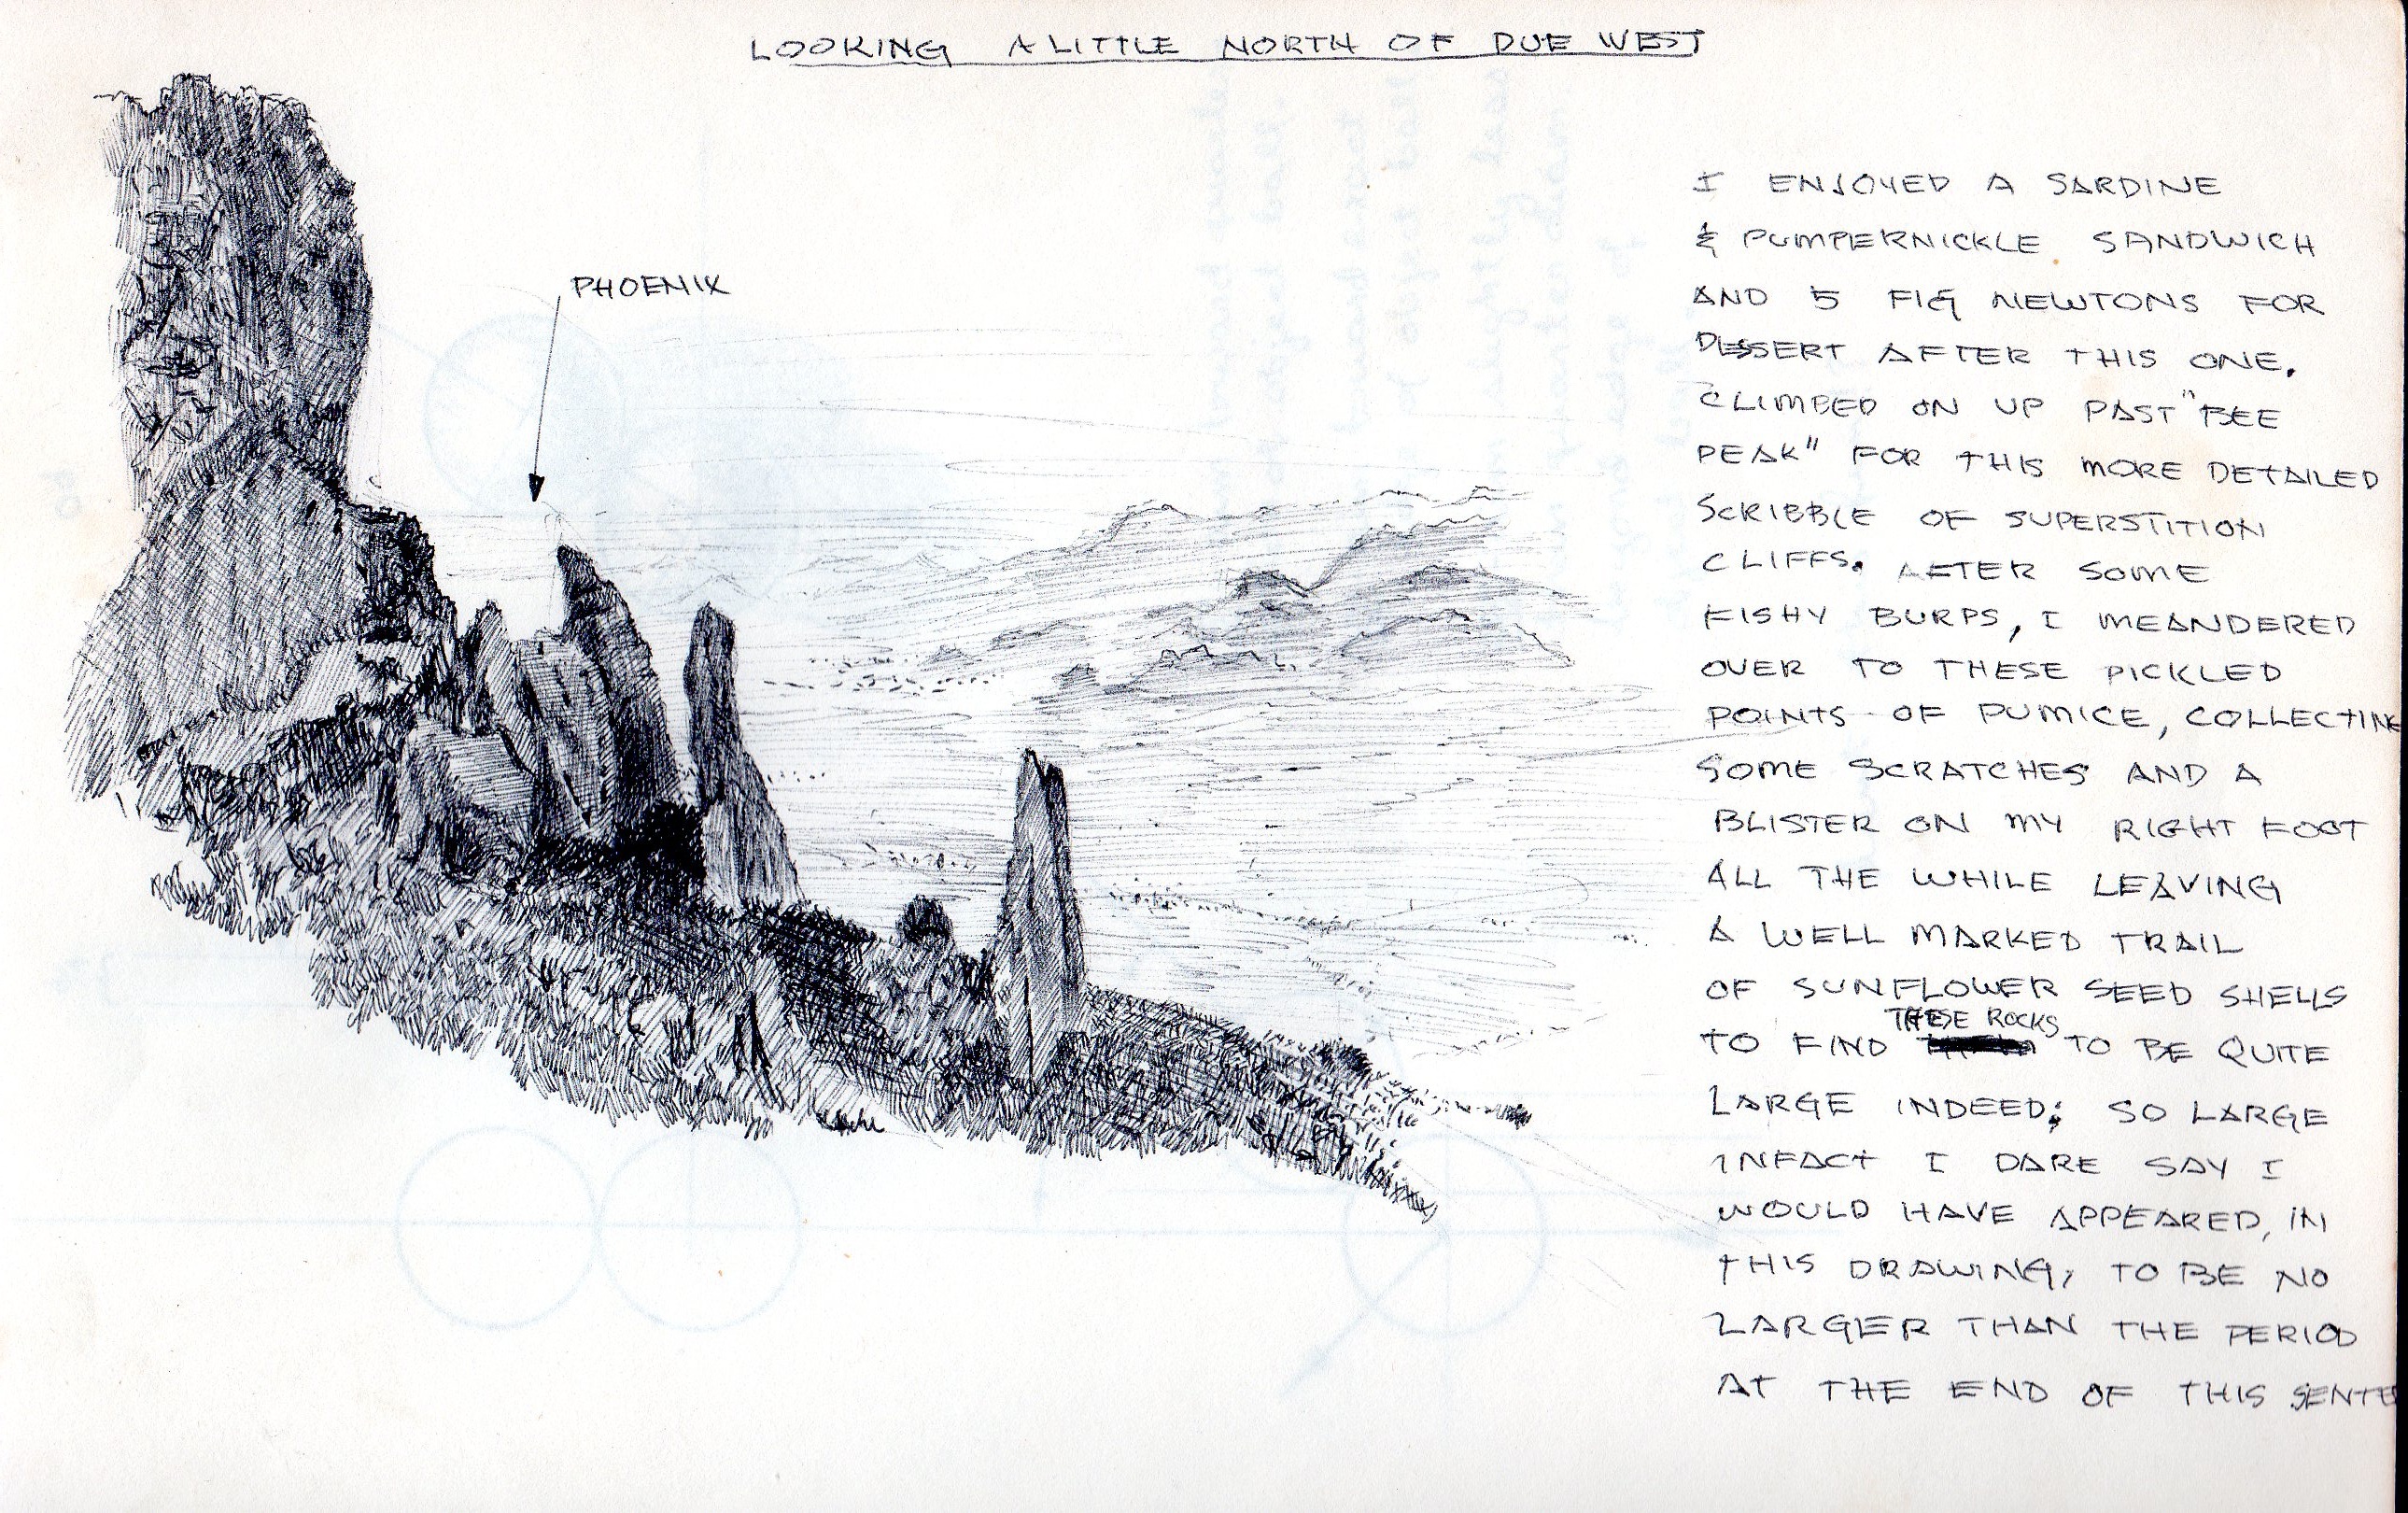 LOOKING A LITTLE NORTH OF DUE WEST
PHOENIX
I ENJOYED A SARDINE
& PUMPERNICKLE SANDWICH
AND 5 FIG NEWTONS FOR
DESSERT AFTER THIS ONE.
CLIMBED ON UP PAST "BEE
PEAK" FOR THIS MORE DETAILED
SCRIBBLE OF SUPERSTITION
CLIFFS. AFTER SOME
FISHY BURPS, I MEANDERED
OVER TO THESE PICKLED
POINTS OF PUMICE, COLLECTING
SOME SCRATCHES AND A
BLISTER ON MY RIGHT FOOT
ALL THE WHILE LEAVING
A WELL MARKED TRAIL
OF SUNFLOWER SEED SHELLS
THESE ROCKS
TO FIND TO BE QUITE
LARGE INDEED; SO LARGE
INFACT I DARE SAY I
WOULD HAVE APPEARED, IN
THIS DRAWING, TO BE NO
LARGER THAN THE PERIOD
AT THE END OF THIS SENTE